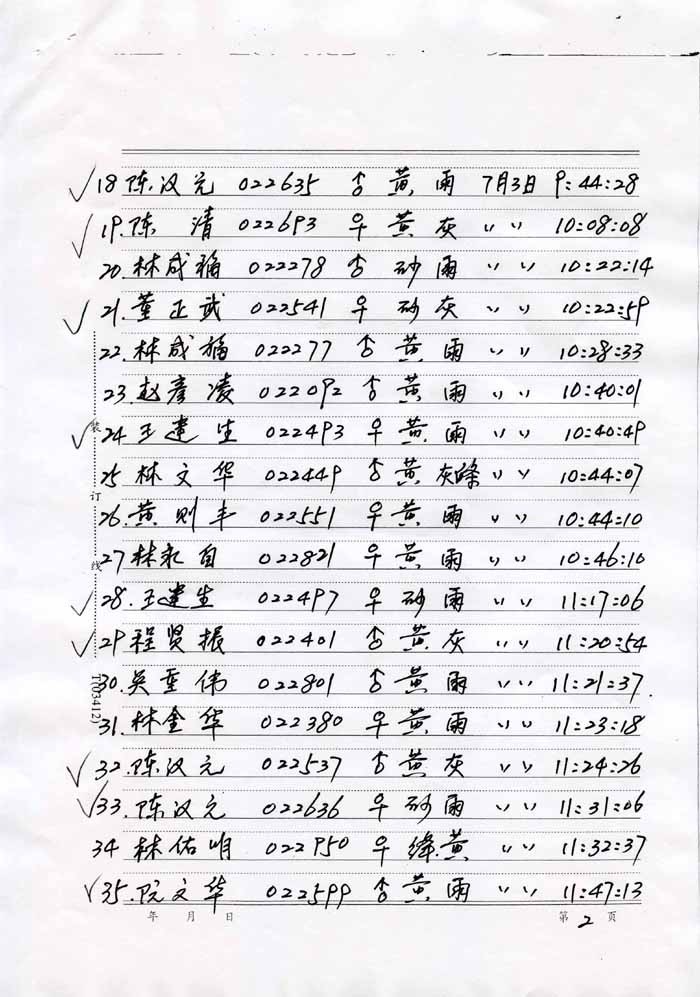 ✓18 陈汉元 022635 ♂ 黄 雨 7月3日 9:44:28
✓19.陈 清 022693 ♀ 黄 灰 〃 〃 10:08:08
20.林成福 022278 ♂ 砂 雨 〃 〃 10:22:14
✓21.董正武 022541 ♀ 砂 灰 〃 〃 10:22:59
22.林成福 022277 ♂ 黄 雨 〃 〃 10:28:33
23.赵彦凌 022092 ♂ 黄 雨 〃 〃 10:40:01
✓24.王建生 022493 ♀ 黄 雨 〃 〃 10:40:49
25 林文华 022449 ♂ 黄 灰绛 〃 〃 10:44:07
26.黄则丰 022551 ♀ 黄 雨 〃 〃 10:44:10
27 林永自 022821 ♀ 黄 雨 〃 〃 10:46:10
✓28.王建生 022497 ♀ 砂 雨 〃 〃 11:17:06
✓29 程贤振 022401 ♂ 黄 灰 〃 〃 11:20:54
30.吴重伟 022801 ♂ 黄 雨 〃 〃 11:21:37
31.林金华 022380 ♀ 黄 雨 〃 〃 11:23:18
✓32.陈汉元 022537 ♂ 黄 灰 〃 〃 11:24:26
✓33.陈汉元 022636 ♀ 砂 雨 〃 〃 11:31:06
34 林佑明 022950 ♀ 绛黄 〃 〃 11:32:37
✓35.阮文华 022599 ♂ 黄 雨 〃 〃 11:47:13
年 月 日 第 2 页
装订线
T(05412)